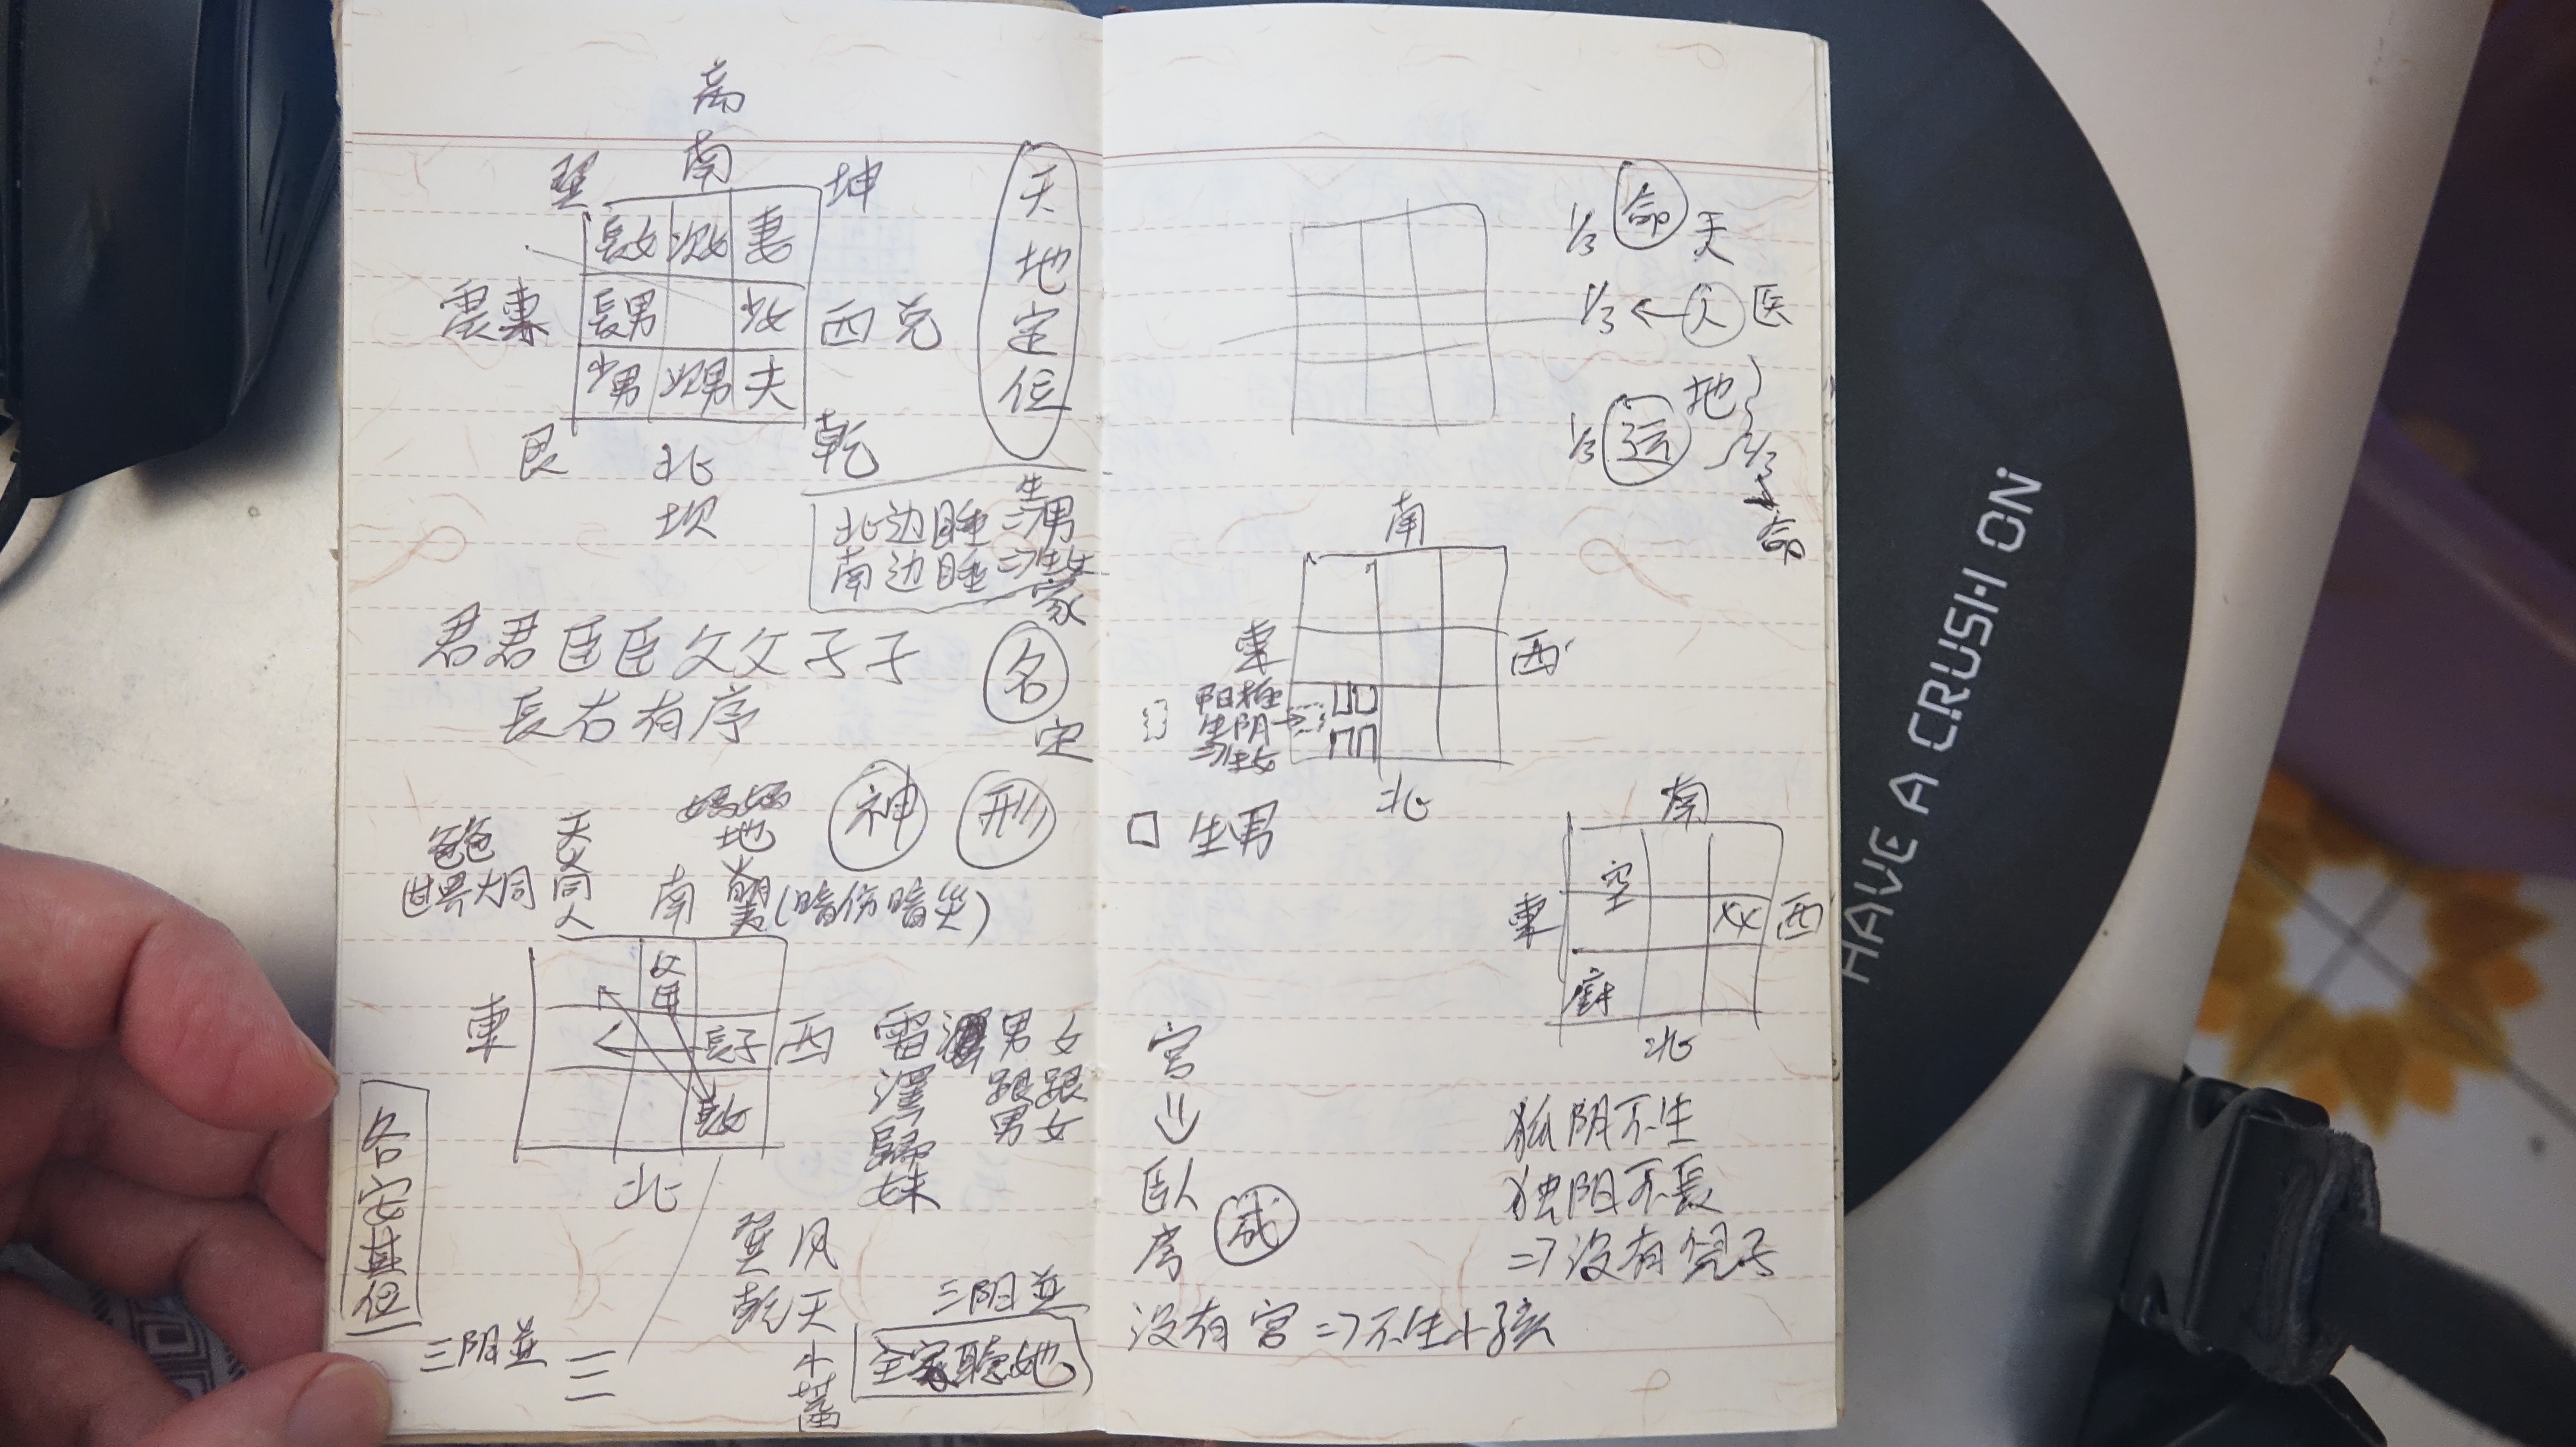 离
南
巽
坤
長女 次女 妻
震東
長男 少女
西 兑
少男 次男 夫
艮
北
乾
坎
天地定位
北边睡⇒生男
南边睡⇒生女
家
君君臣臣父父子子
長右有序
名
定
爸爸
世界大同
天
火
同
人
妈妈
地
火
明
夷(暗伤暗災)
神
刑
南
父
母
東
長子
西
長女
北
雷澤
澤
歸
妹
男 女
跟 跟
男 女
各安其位
巽风
乾天
小
蓄
三阴並
三阴並
全家聽她
1/3 命 天
1/3 ← 人 医
地
1/3 运
2/3
命
南
東
西
阳極
生阴
生女
北
生男
南
空
東
女
西
廚
北
宫
卧
房
成
狐阴不生
独阳不長
⇒没有兒子
没有宫⇒不生小孩
HAVE A CRUSH ON